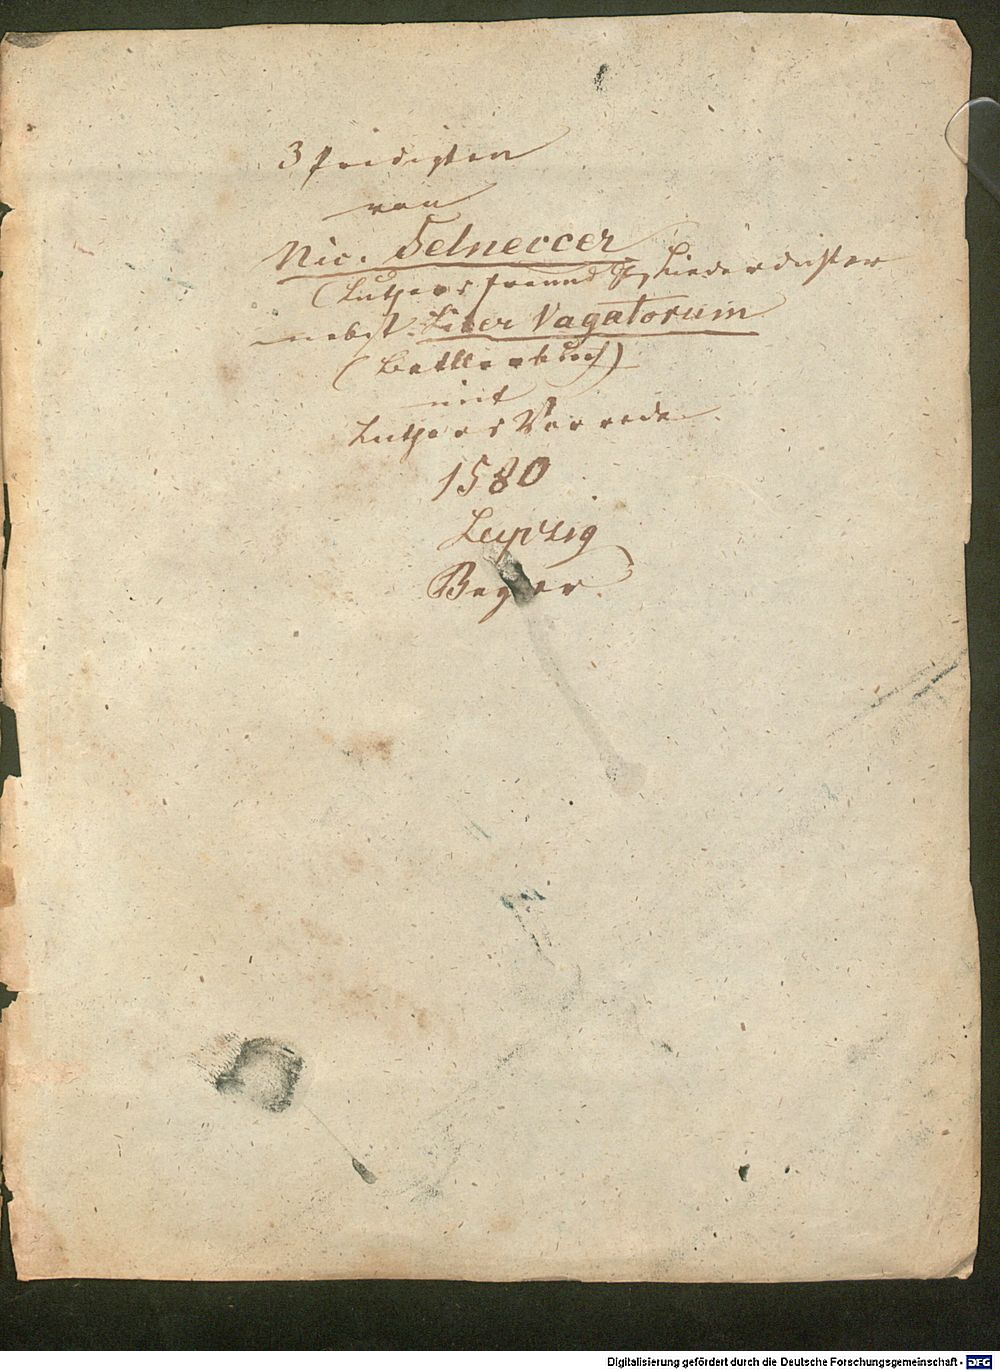 3 Predigten
von
Nic. Selneccer
(Luthers freund & Liederdichter
nebst Liber Vagatorum
(Bettlerbuch)
mit
Luthers Vorrede
1580
Leipzig
Beyer.
Digitalisierung gefördert durch die Deutsche Forschungsgemeinschaft - DFG